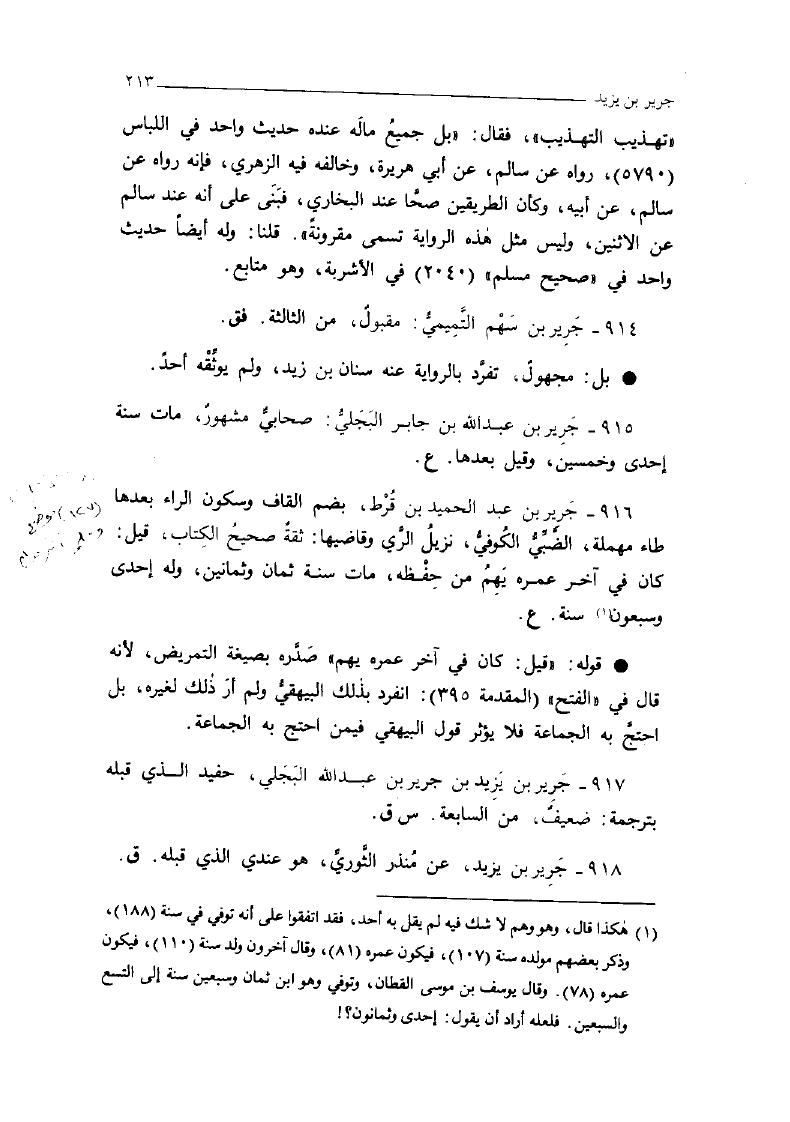 جرير بن يزيد ٢١٣
«تهذيب التهذيب»، فقال: «بل جميعُ مالَه عنده حديث واحد في اللباس
(٥٧٩٠)، رواه عن سالم، عن أبي هريرة، وخالفه فيه الزهري، فإنه رواه عن
سالم، عن أبيه، وكأن الطريقين صحَّا عند البخاري، فبَنَى على أنه عند سالم
عن الاثنين، وليس مثل هٰذه الرواية تسمى مقرونةً». قلنا: وله أيضاً حديث
واحد في «صحيح مسلم» (٢٠٤٠) في الأشربة، وهو متابع.
٩١٤ - جَرِير بن سَهْم التَّمِيميُّ: مقبولٌ، من الثالثة. فق.
● بل: مجهولٌ، تفرَّد بالرواية عنه سنان بن زيد، ولم يوثِّقْه أحدٌ.
٩١٥ - جَرِير بن عبدالله بن جابر البَجَليُّ: صحابيٌّ مشهورٌ، مات سنة
إحدى وخمسين، وقيل بعدها. ع.
٩١٦ - جَرير بن عبد الحميد بن قُرْط، بضم القاف وسكون الراء بعدها
طاء مهملة، الضَّبِّيُّ الكُوفيُّ، نزيلُ الرَّي وقاضيها: ثقةٌ صحيحُ الكِتاب، قيل:
كان في آخر عمره يَهِمُ من حِفْظه، مات سنة ثمان وثمانين، وله إحدى
وسبعون(١) سنة. ع.
● قوله: «قيل: كان في آخر عمره يهم» صَدَّره بصيغة التمريض، لأنه
قال في «الفتح» (المقدمة ٣٩٥): انفرد بذٰلك البيهقيُّ ولم أرَ ذٰلك لغيره، بل
احتجَّ به الجماعة فلا يؤثر قول البيهقي فيمن احتج به الجماعة.
٩١٧ - جَرِير بن يَزِيد بن جرير بن عبدالله البَجَلي، حفيد الذي قبله
بترجمة: ضعيفٌ، من السابعة. س ق.
٩١٨ - جَرِير بن يزيد، عن مُنذر الثَّوريِّ، هو عندي الذي قبله. ق.
(١) هٰكذا قال، وهو وهم لا شك فيه لم يقل به أحد، فقد اتفقوا على أنه توفي في سنة (١٨٨)،
وذكر بعضهم مولده سنة (١٠٧)، فيكون عمره (٨١)، وقال آخرون ولد سنة (١١٠)، فيكون
عمره (٧٨). وقال يوسف بن موسى القطان، وتوفي وهو ابن ثمان وسبعين سنة إلى التسع
والسبعين. فلعله أراد أن يقول: إحدى وثمانون؟!